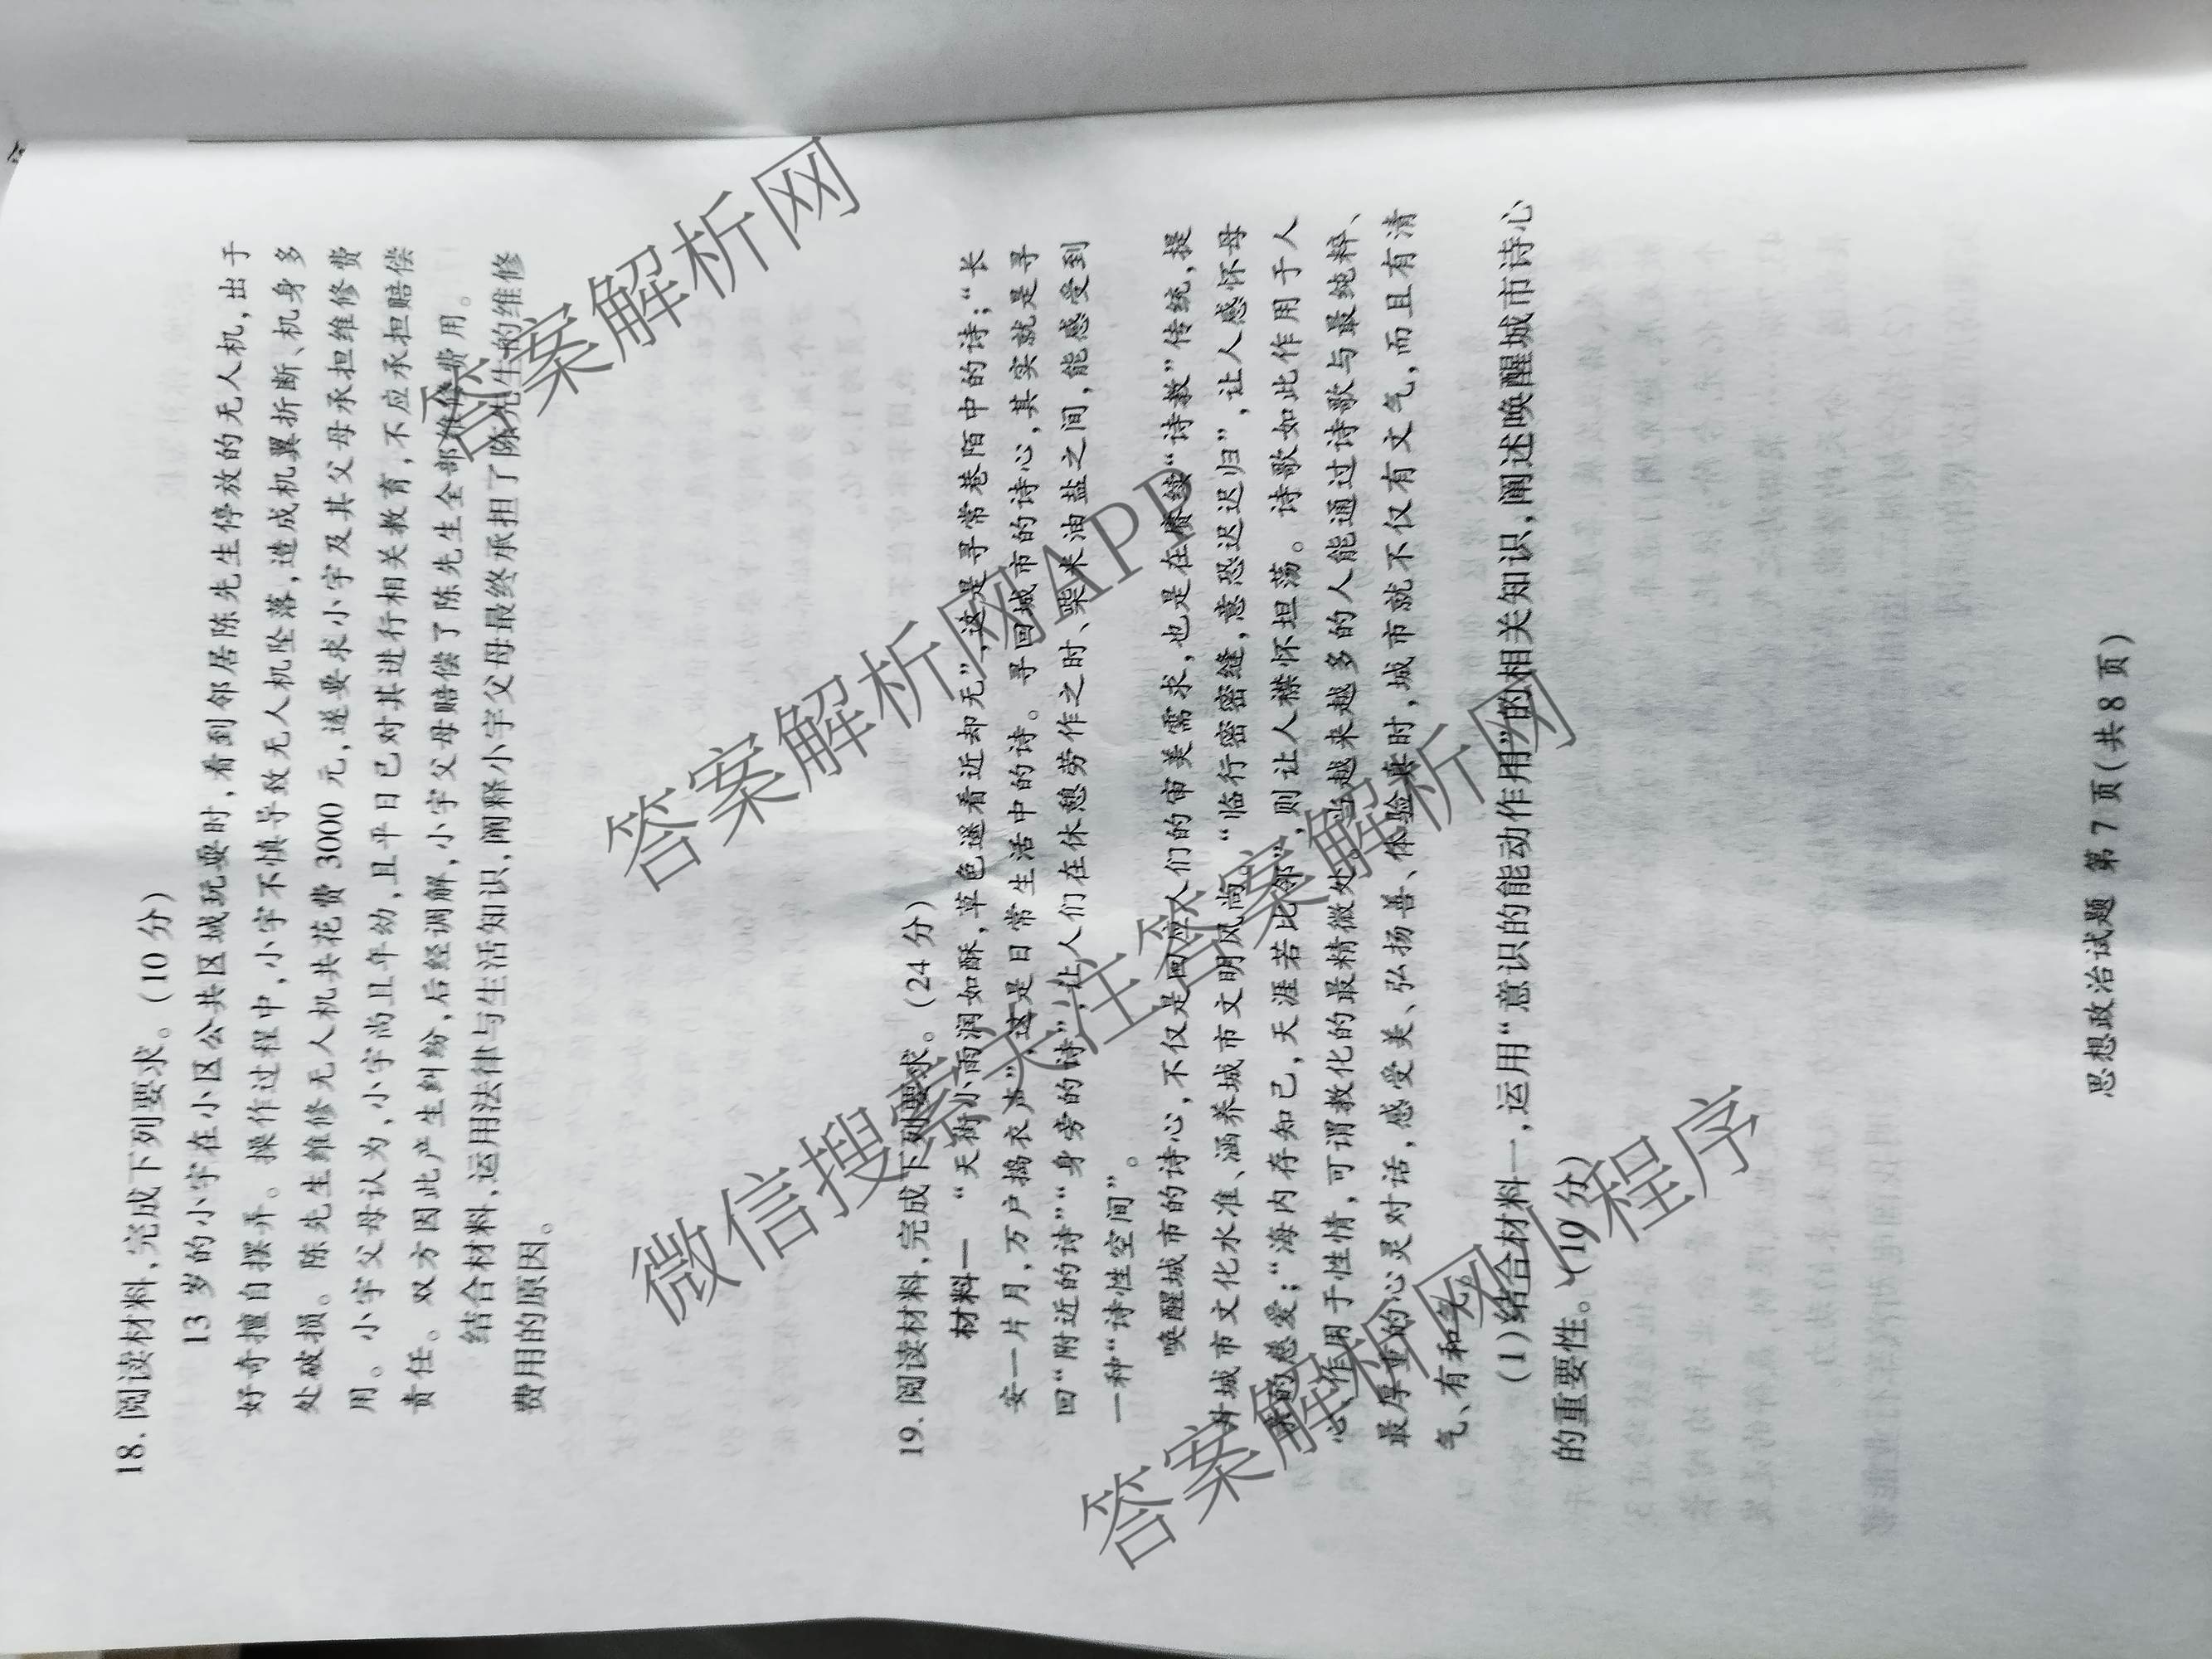 18. 阅读材料,完成下列要求。(10分)
13岁的小宇在小区公共区域玩耍时,看到邻居陈先生停放的无人机,出于
好奇擅自摆弄。操作过程中,小宇不慎导致无人机坠落,造成机翼折断、机身多
处破损。陈先生维修无人机共花费3000元,遂要求小宇及其父母承担维修费
用。小宇父母认为,小宇尚且年幼,且平日已对其进行相关教育,不应承担赔偿
责任。双方因此产生纠纷,后经调解,小宇父母赔偿了陈先生全部维修费用。
结合材料,运用法律与生活知识,阐释小宇父母最终承担了陈先生的维修
费用的原因。
19. 阅读材料,完成下列要求。(24分)
材料一 “天街小雨润如酥,草色遥看近却无”,这是寻常巷陌中的诗;“长
安一片月,万户捣衣声”,这是日常生活中的诗。寻回城市的诗心,其实就是寻
回“附近的诗”“身旁的诗”,让人们在休憩劳作之时、柴米油盐之间,能感受到
一种“诗性空间”。
唤醒城市的诗心,不仅是回应人们的审美需求,也是在赓续“诗教”传统,提
升城市文化水准、涵养城市文明风尚。“临行密密缝,意恐迟迟归”,让人感怀母
亲的慈爱;“海内存知己,天涯若比邻”,则让人襟怀坦荡。诗歌如此作用于人
心、作用于性情,可谓教化的最精微处。当越来越多的人能通过诗歌与最纯粹、
最厚重的心灵对话,感受美、弘扬善、体验真时,城市就不仅有文气,而且有清
气、有和气。
(1)结合材料一,运用“意识的能动作用”的相关知识,阐述唤醒城市诗心
的重要性。(10分)
思想政治试题 第7页(共8页)
答案解析网
答案解析网APP
微信搜索关注答案解析网
答案解析网小程序